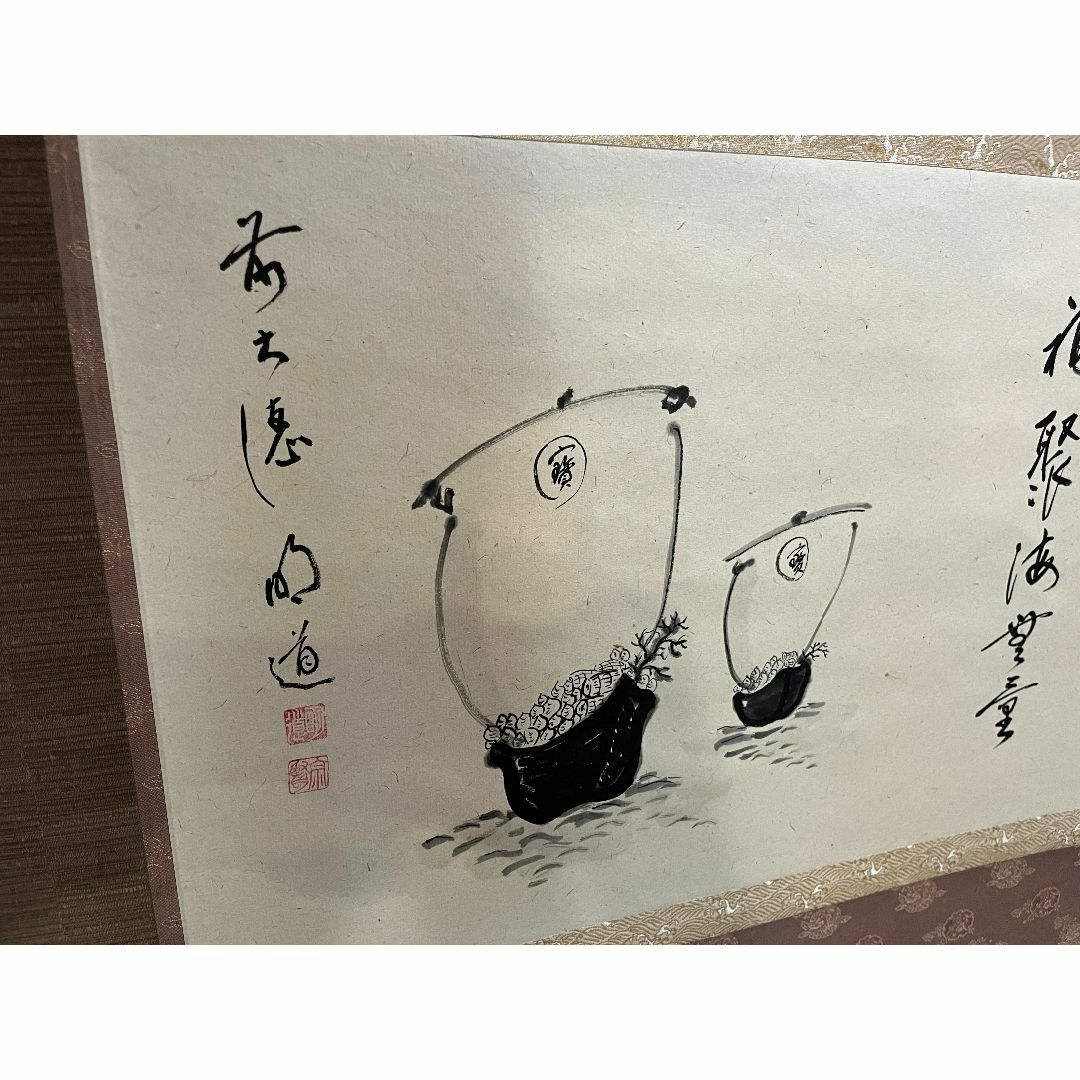 福聚海無量
寶
寶
前大德
明道